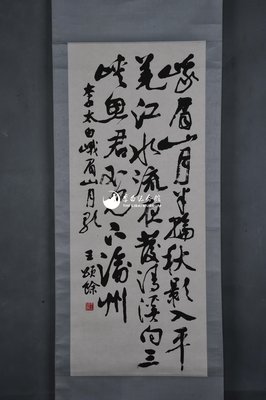 峨眉山月半輪秋影入平
羌江水流夜發清溪向三
峽思君不見下渝州
李太白峨眉山月歌
王頌餘